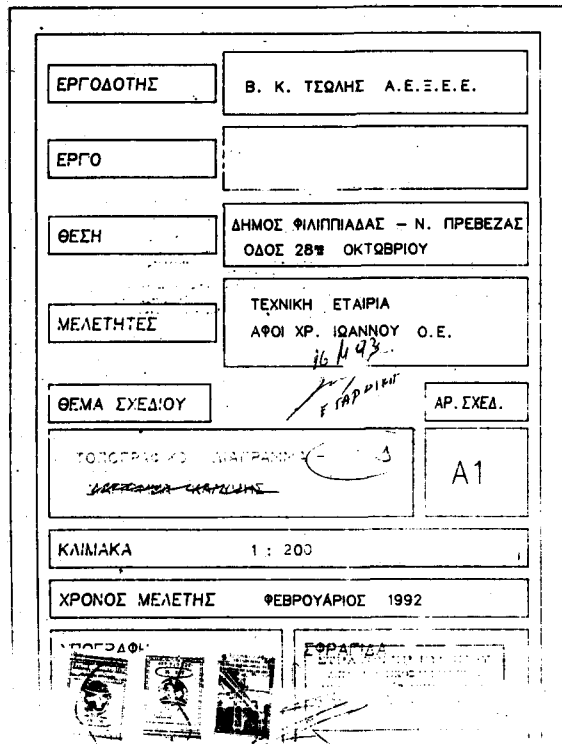 ΕΡΓΟΔΟΤΗΣ
Β. Κ. ΤΣΩΛΗΣ Α.Ε.Ξ.Ε.Ε.
ΕΡΓΟ
ΘΕΣΗ
ΔΗΜΟΣ ΦΙΛΙΠΠΙΑΔΑΣ – Ν. ΠΡΕΒΕΖΑΣ
ΟΔΟΣ 28ης ΟΚΤΩΒΡΙΟΥ
ΜΕΛΕΤΗΤΕΣ
ΤΕΧΝΙΚΗ ΕΤΑΙΡΙΑ
ΑΦΟΙ ΧΡ. ΙΩΑΝΝΟΥ Ο.Ε.
ΘΕΜΑ ΣΧΕΔΙΟΥ
ΑΡ. ΣΧΕΔ.
ΤΟΠΟΓΡΑΦΙΚΟ ΔΙΑΓΡΑΜΜΑ
Α1
ΚΛΙΜΑΚΑ 1 : 200
ΧΡΟΝΟΣ ΜΕΛΕΤΗΣ ΦΕΒΡΟΥΑΡΙΟΣ 1992
ΥΠΟΓΡΑΦΗ
ΣΦΡΑΓΙΔΑ